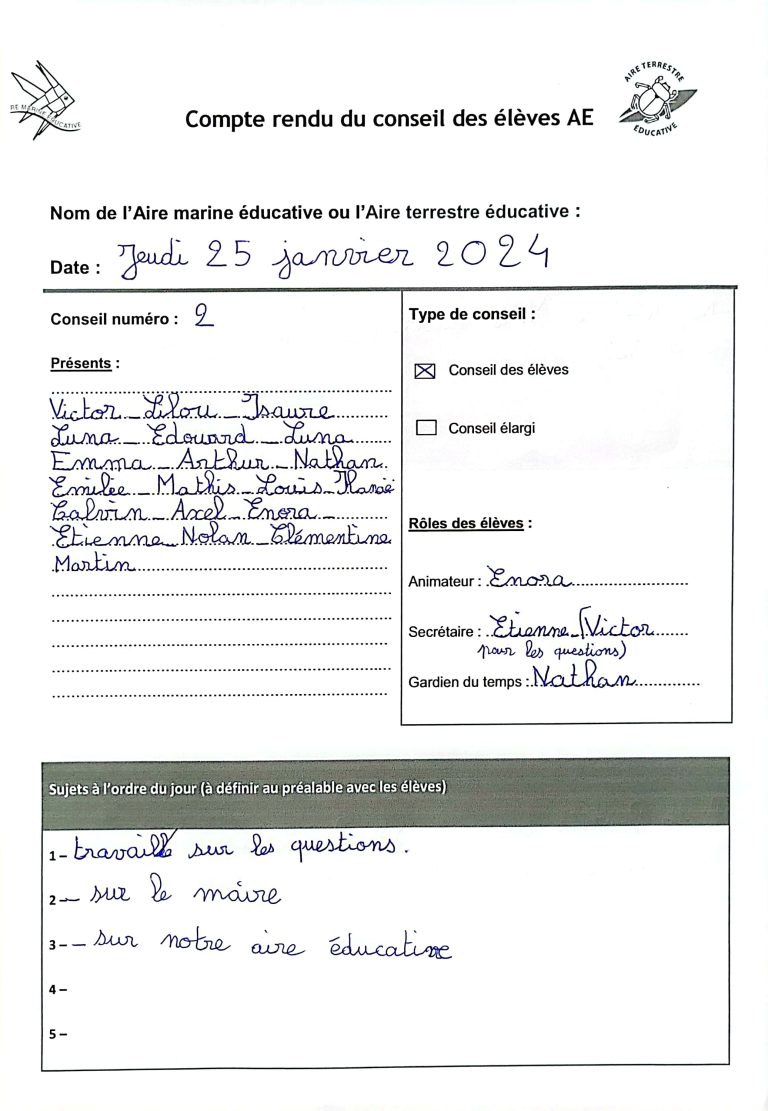 AIRE TERRESTRE
ÉDUCATIVE
RE MARINE EDUCATIVE
Compte rendu du conseil des élèves AE
Nom de l'Aire marine éducative ou l'Aire terrestre éducative :
Date : Jeudi 25 janvier 2024
Conseil numéro : 2
Présents :
Victor _ Lilou _ Isaure
Luna _ Edouard _ Luna
Emma _ Arthur _ Nathan
Emilée _ Mathis _ Louis _
Calvin _ Axel _ Enora _
Etienne _ Nolan _ Clémentine
Martin
Type de conseil :
Conseil des élèves
Conseil élargi
Rôles des élèves :
Animateur : Enora
Secrétaire : Etienne _ (Victor
pour les questions)
Gardien du temps : Nathan
Sujets à l'ordre du jour (à définir au préalable avec les élèves)
1 – travaillé sur les questions.
2 – sur le maire
3 – – sur notre aire éducative
4 –
5 –